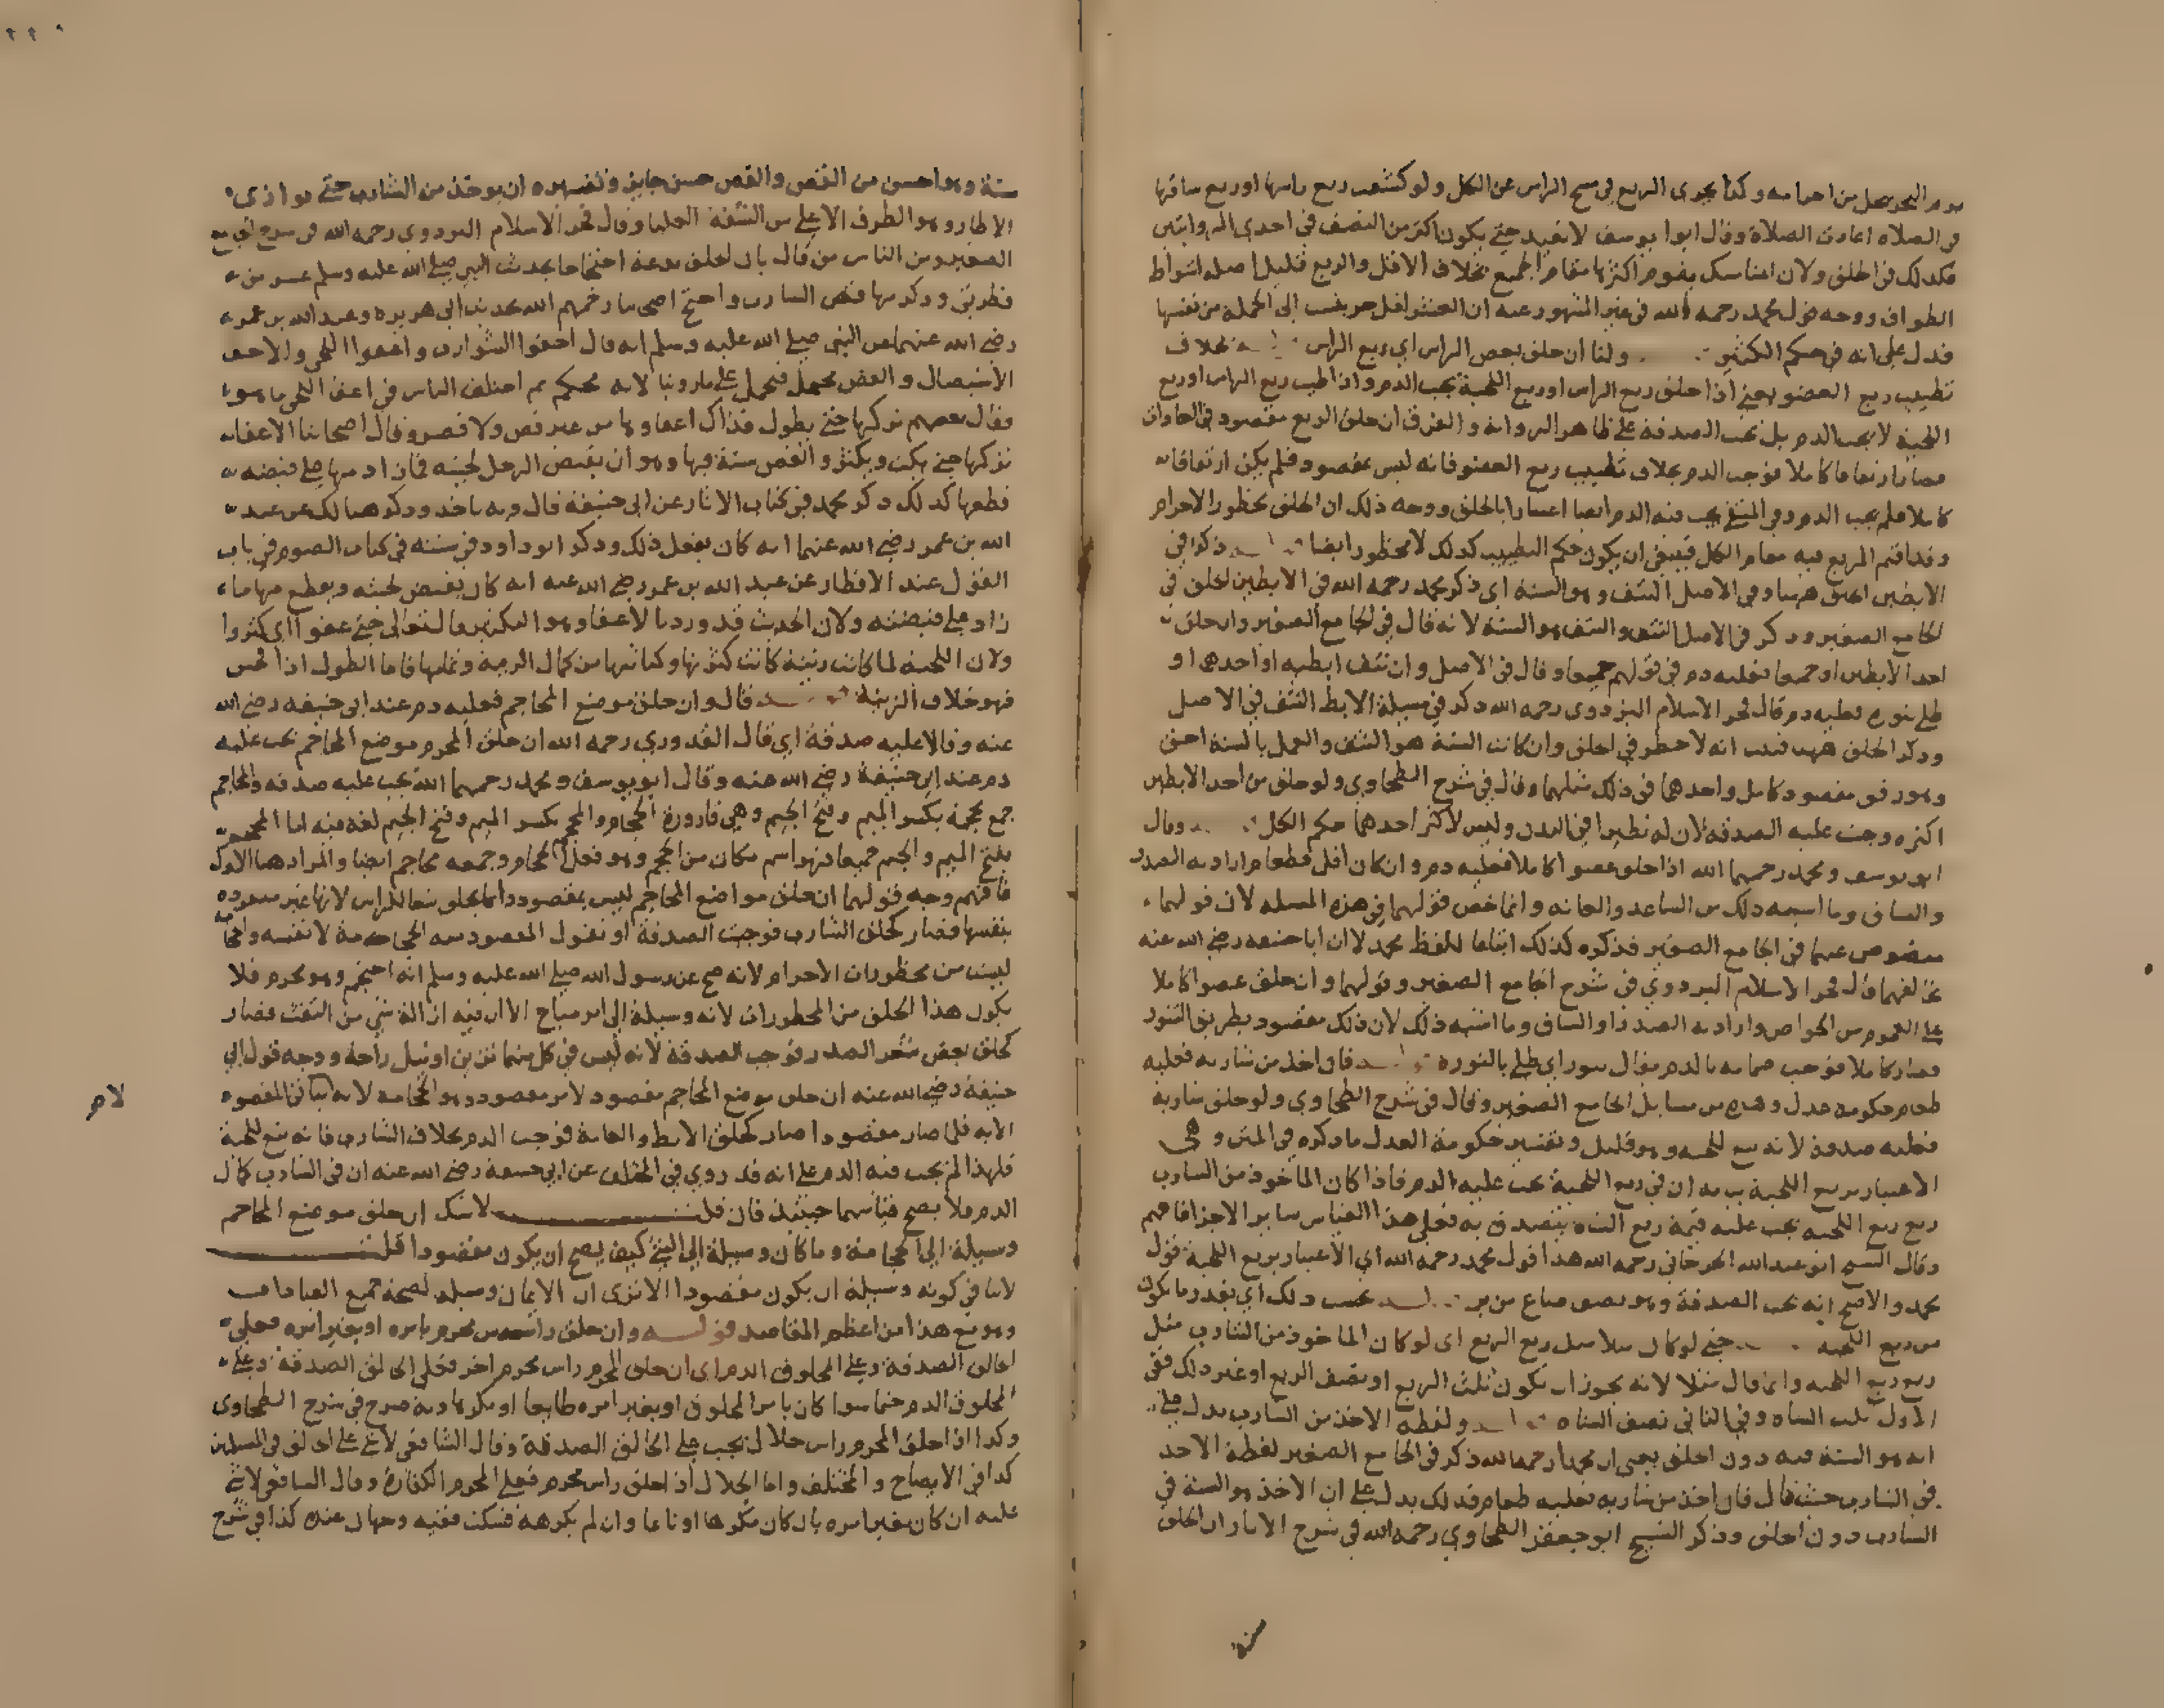 يوم النحر يحل من احرامه وكذا يجزى الربع في مسح الراس عن الكل ولو كشفت ربع راسها او ربع ساقها
في الصلاة اعادت الصلاة وقال ابو يوسف لا تعيد حتى يكون اكثر من النصف في احدى الروايتين
فكذلك في الحلق ولان المناسك يقوم اكثرها مقام الجميع بخلاف الاقل والربع قليل اصله اشواط
الطواف ووجه قول محمد رحمه الله في غير المشهور عنه ان العشر اقل جزء ينسب الى الجملة من نفسها
فدل على انه في حكم الكثير ولنا ان حلق بعض الراس اي ربع الراس بخلاف
تطييب ربع العضو يعني اذا حلق ربع الراس او ربع اللحية يجب الدم وان طيب ربع الراس او ربع
اللحية لا يجب الدم بل تجب الصدقة على ظاهر الرواية والفرق ان حلق الربع مقصود في العادات
فصار ارتفاقا كاملا فوجب الدم بخلاف تطييب ربع العضو فانه ليس بمقصود فلم يكن ارتفاقا
كاملا فلم يجب الدم وفي المنتقى يجب فيه الدم ايضا اعتبارا بالحلق ووجه ذلك ان الحلق محظور الاحرام
وقد اقيم الربع فيه مقام الكل فينبغي ان يكون حكم التطييب كذلك لانه محظور ايضا ذكر في
الابطين الحلق ههنا وفي الاصل النتف وهو السنة اي ذكر محمد رحمه الله في الابطين الحلق في
الجامع الصغير وذكر في الاصل النتف والنتف هو السنة لانه قال في الجامع الصغير وان حلق
احد الابطين او جميعا فعليه دم في قولهم جميعا وقال في الاصل وان نتف ابطيه او احدهما او
طلى بنورة فعليه دم قال فخر الاسلام البزدوي رحمه الله ذكر في مسئلة الابط النتف في الاصل
وذكر الحلق ههنا فثبت انه لا حظر في الحلق وان كانت السنة هو النتف والعمل بالسنة احق
وهو رفق مقصود كامل واحدهما في ذلك مثلهما وقال في شرح الطحاوي ولو حلق من احد الابطين
اكثره وجبت عليه الصدقة لان له نظيرا في البدن وليس لاكثر احدهما حكم الكل وقال
ابو يوسف ومحمد رحمهما الله اذا حلق عضوا كاملا فعليه دم وان كان اقل فطعام اراد به الصدر
والساق وما اشبه ذلك من الساعد والعانة وانما خص قولهما في هذه المسئلة لان قولهما
منصوص عنهما في الجامع الصغير فذكره كذلك اتباعا للفظ محمد لا ان ابا حنيفة رضي الله عنه
يخالفهما قال فخر الاسلام البزدوي في شرح الجامع الصغير وقولهما وان حلق عضوا كاملا
على العموم من الخواص واراد به الصدر والساق وما اشبه ذلك لان ذلك مقصود بطريق التنور
فصار كاملا فوجب ضمانه بالدم يقال تنور اي طلى بالنورة فان اخذ من شاربه فعليه
طعام حكومة عدل وهذه من مسايل الجامع الصغير وقال في شرح الطحاوي ولو حلق شاربه
فعليه صدقة لانه تبع للحية وهو قليل وتفسير حكومة العدل ما ذكره في المتن وهي
الاعتبار بربع اللحية يريد به ان في ربع اللحية يجب عليه الدم فاذا كان الماخوذ من الشارب
ربع ربع اللحية يجب عليه قيمة ربع الشاة يتصدق به فعلى هذا القياس ساير الاجزا فافهم
وقال الشيخ ابو عبد الله الجرجاني رحمه الله هذا قول محمد رحمه الله اي الاعتبار بربع اللحية قول
محمد والاصح انه تجب الصدقة وهو نصف صاع من بر بحسب ذلك اي بقدر ما يكون
من ربع اللحية حتى لو كان مثلا مثل ربع الربع اي لو كان الماخوذ من الشارب مثل
ربع ربع اللحية وانما قال مثلا لانه يجوز ان يكون ثلث الربع او نصف الربع او غير ذلك ففي
الاول ثلث الشاة وفي الثاني نصف الشاة ولفظه الاخذ من الشارب يدل على
انه هو السنة فيه دون الحلق يعني ان محمدا رحمه الله ذكر في الجامع الصغير لفظة الاخذ
في الشارب حيث قال فان اخذ من شاربه فعليه طعام فذلك يدل على ان الاخذ هو السنة في
الشارب دون الحلق وذكر الشيخ ابو جعفر الطحاوي رحمه الله في شرح الاثار ان الحلق
سنة
سنة وهو احسن من القص والقص حسن جايز وتفسيره ان يوخذ من الشارب حتى يوازي
الاطار وهو الطرف الاعلى من الشفة العليا وقال فخر الاسلام البزدوي رحمه الله في شرح الجامع
الصغير ومن الناس من قال بان الحلق بدعة احتجاجا بحديث النبي صلى الله عليه وسلم عشر من
فطرتي وذكر منها قص الشارب واحتج اصحابنا رحمهم الله بحديث ابي هريرة وعبد الله بن عمر
رضي الله عنهما عن النبي صلى الله عليه وسلم انه قال احفوا الشوارب واعفوا اللحى والاحفا
الاستيصال والقص محتمل فيحمل على ما روينا لانه محكم ثم اختلف الناس في اعفا اللحى ما هو
فقال بعضهم تركها حتى تطول فذاك اعفاوها من غير قص ولا قصر وقال اصحابنا الاعفا
تركها حتى تكث وتكثر والقص سنة فيها وهو ان يقبض الرجل لحيته فما زاد منها على قبضه
قطعها كذلك ذكر محمد في كتاب الاثار عن ابي حنيفة قال وبه ناخذ وذكر هنالك عن عبد
الله بن عمر رضي الله عنهما انه كان يفعل ذلك وذكر ابو داود في سننه في كتاب الصوم في باب
القول عند الافطار عن عبد الله بن عمر رضي الله عنه انه كان يقبض لحيته ويقطع منها ما
زاد على قبضته ولان الحديث قد ورد بالاعفا وهو التكثير قال تعالى حتى عفوا اي كثروا
ولان اللحية لما كانت زينة كانت كثرتها وكثافتها من كمال الزينة وتمامها فاما الطول اذا فحش
فهو خلاف الزينة قال وان حلق موضع المحاجم فعليه دم عند ابي حنيفة رضي الله
عنه وقالا عليه صدقة اي قال القدوري رحمه الله ان حلق المحرم موضع المحاجم يجب عليه
دم عند ابي حنيفة رضي الله عنه وقال ابو يوسف ومحمد رحمهما الله تجب عليه صدقة والمحاجم
جمع محجمة بكسر الميم وفتح الجيم وهي قارورة الحجام والمحجم بكسر الميم وفتح الجيم لغة فيه اما المحجم
بفتح الميم والجيم جميعا فهو اسم مكان من الحجم وهو فعل الحجام وجمعه محاجم ايضا والمراد هنا الاول
فافهم وجه قولهما ان حلق مواضع المحاجم ليس بمقصود وانما يحلق تبعا للراس لانها غير مقصودة
بنفسها فصار كحلق الشارب فوجبت الصدقة او نقول المقصود منه الحجامة لا نفسه والحجامة
ليست من محظورات الاحرام لانه صح عن رسول الله صلى الله عليه وسلم انه احتجم وهو محرم فلا
يكون هذا الحلق من المحظورات لانه وسيلة الى امر مباح الا ان فيه ازالة شي من التفث فصار
كحلق بعض شعر الصدر فوجب الصدقة لانه ليس في كل منهما تزين او نيل راحة ووجه قول ابي
حنيفة رضي الله عنه ان حلق موضع المحاجم مقصود لامر مقصود وهو الحجامة لانه لا يتاتى المقصود
لام
الا به فلما صار مقصودا صار كحلق الابط والعانة فوجب الدم بخلاف الشارب فانه تبع للحية
فلهذا لم يجب فيه الدم على انه قد روي في المختلف عن ابي حنيفة رضي الله عنه ان في الشارب كمال
الدم فلا يصح قياسهما حينئذ فان قلت لا نسلم ان حلق موضع المحاجم
وسيلة الى الحجامة وما كان وسيلة الى الشي كيف يصح ان يكون مقصودا قلت
لا ينافي كونه وسيلة ان يكون مقصودا الا ترى ان الايمان وسيلة لصحة جميع العبادات
وهو مع هذا من اعظم المقاصد قوله وان حلق راس محرم بامره او بغير امره فعلى
الحالق الصدقة وعلى المحلوق الدم اي ان حلق المحرم راس محرم اخر فعلى الحالق الصدقة وعلى
المحلوق الدم حتما سوا كان بامر المحلوق او بغير امره طايعا او مكرها وبه صرح في شرح الطحاوي
وكذا اذا حلق المحرم راس حلال يجب على الحالق الصدقة وقال الشافعي لا شي على الحالق في المسئلتين
كذا في الايضاح والمختلف واما الحلال اذا حلق راس محرم فعلى المحرم الكفارة وقال الشافعي لا شي
عليه ان كان بغير امره بان كان مكرها او نايما وان لم يكرهه فسكت ففيه وجهان عنده كذا في شرح